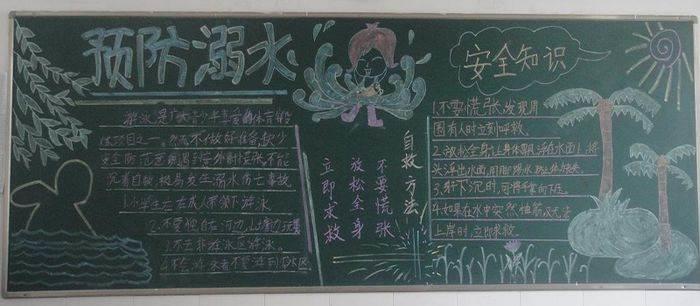 预防溺水
游泳是广大青少年喜爱的体育锻
炼项目之一。然而不做好准备、缺少
安全防范意识,遇到意外时慌张、不能
沉着自救,极易发生溺水伤亡事故。
1.小学生应在成人带领下游泳。
2.不要独自在河边、山塘边玩耍
3.不去非游泳区游泳。
4.不会游泳者不要游到深水区
自救方法
不要慌张
放松全身
立即求救
安全知识
1.不要慌张,发现周
围有人时立刻呼救。
2.放松全身,让身体飘浮在水面上,将
头浮出水面,用脚踢水
3.身体下沉时,可将手掌向下压。
4.如果在水中突然抽筋,又无法
上岸时,立即求救。